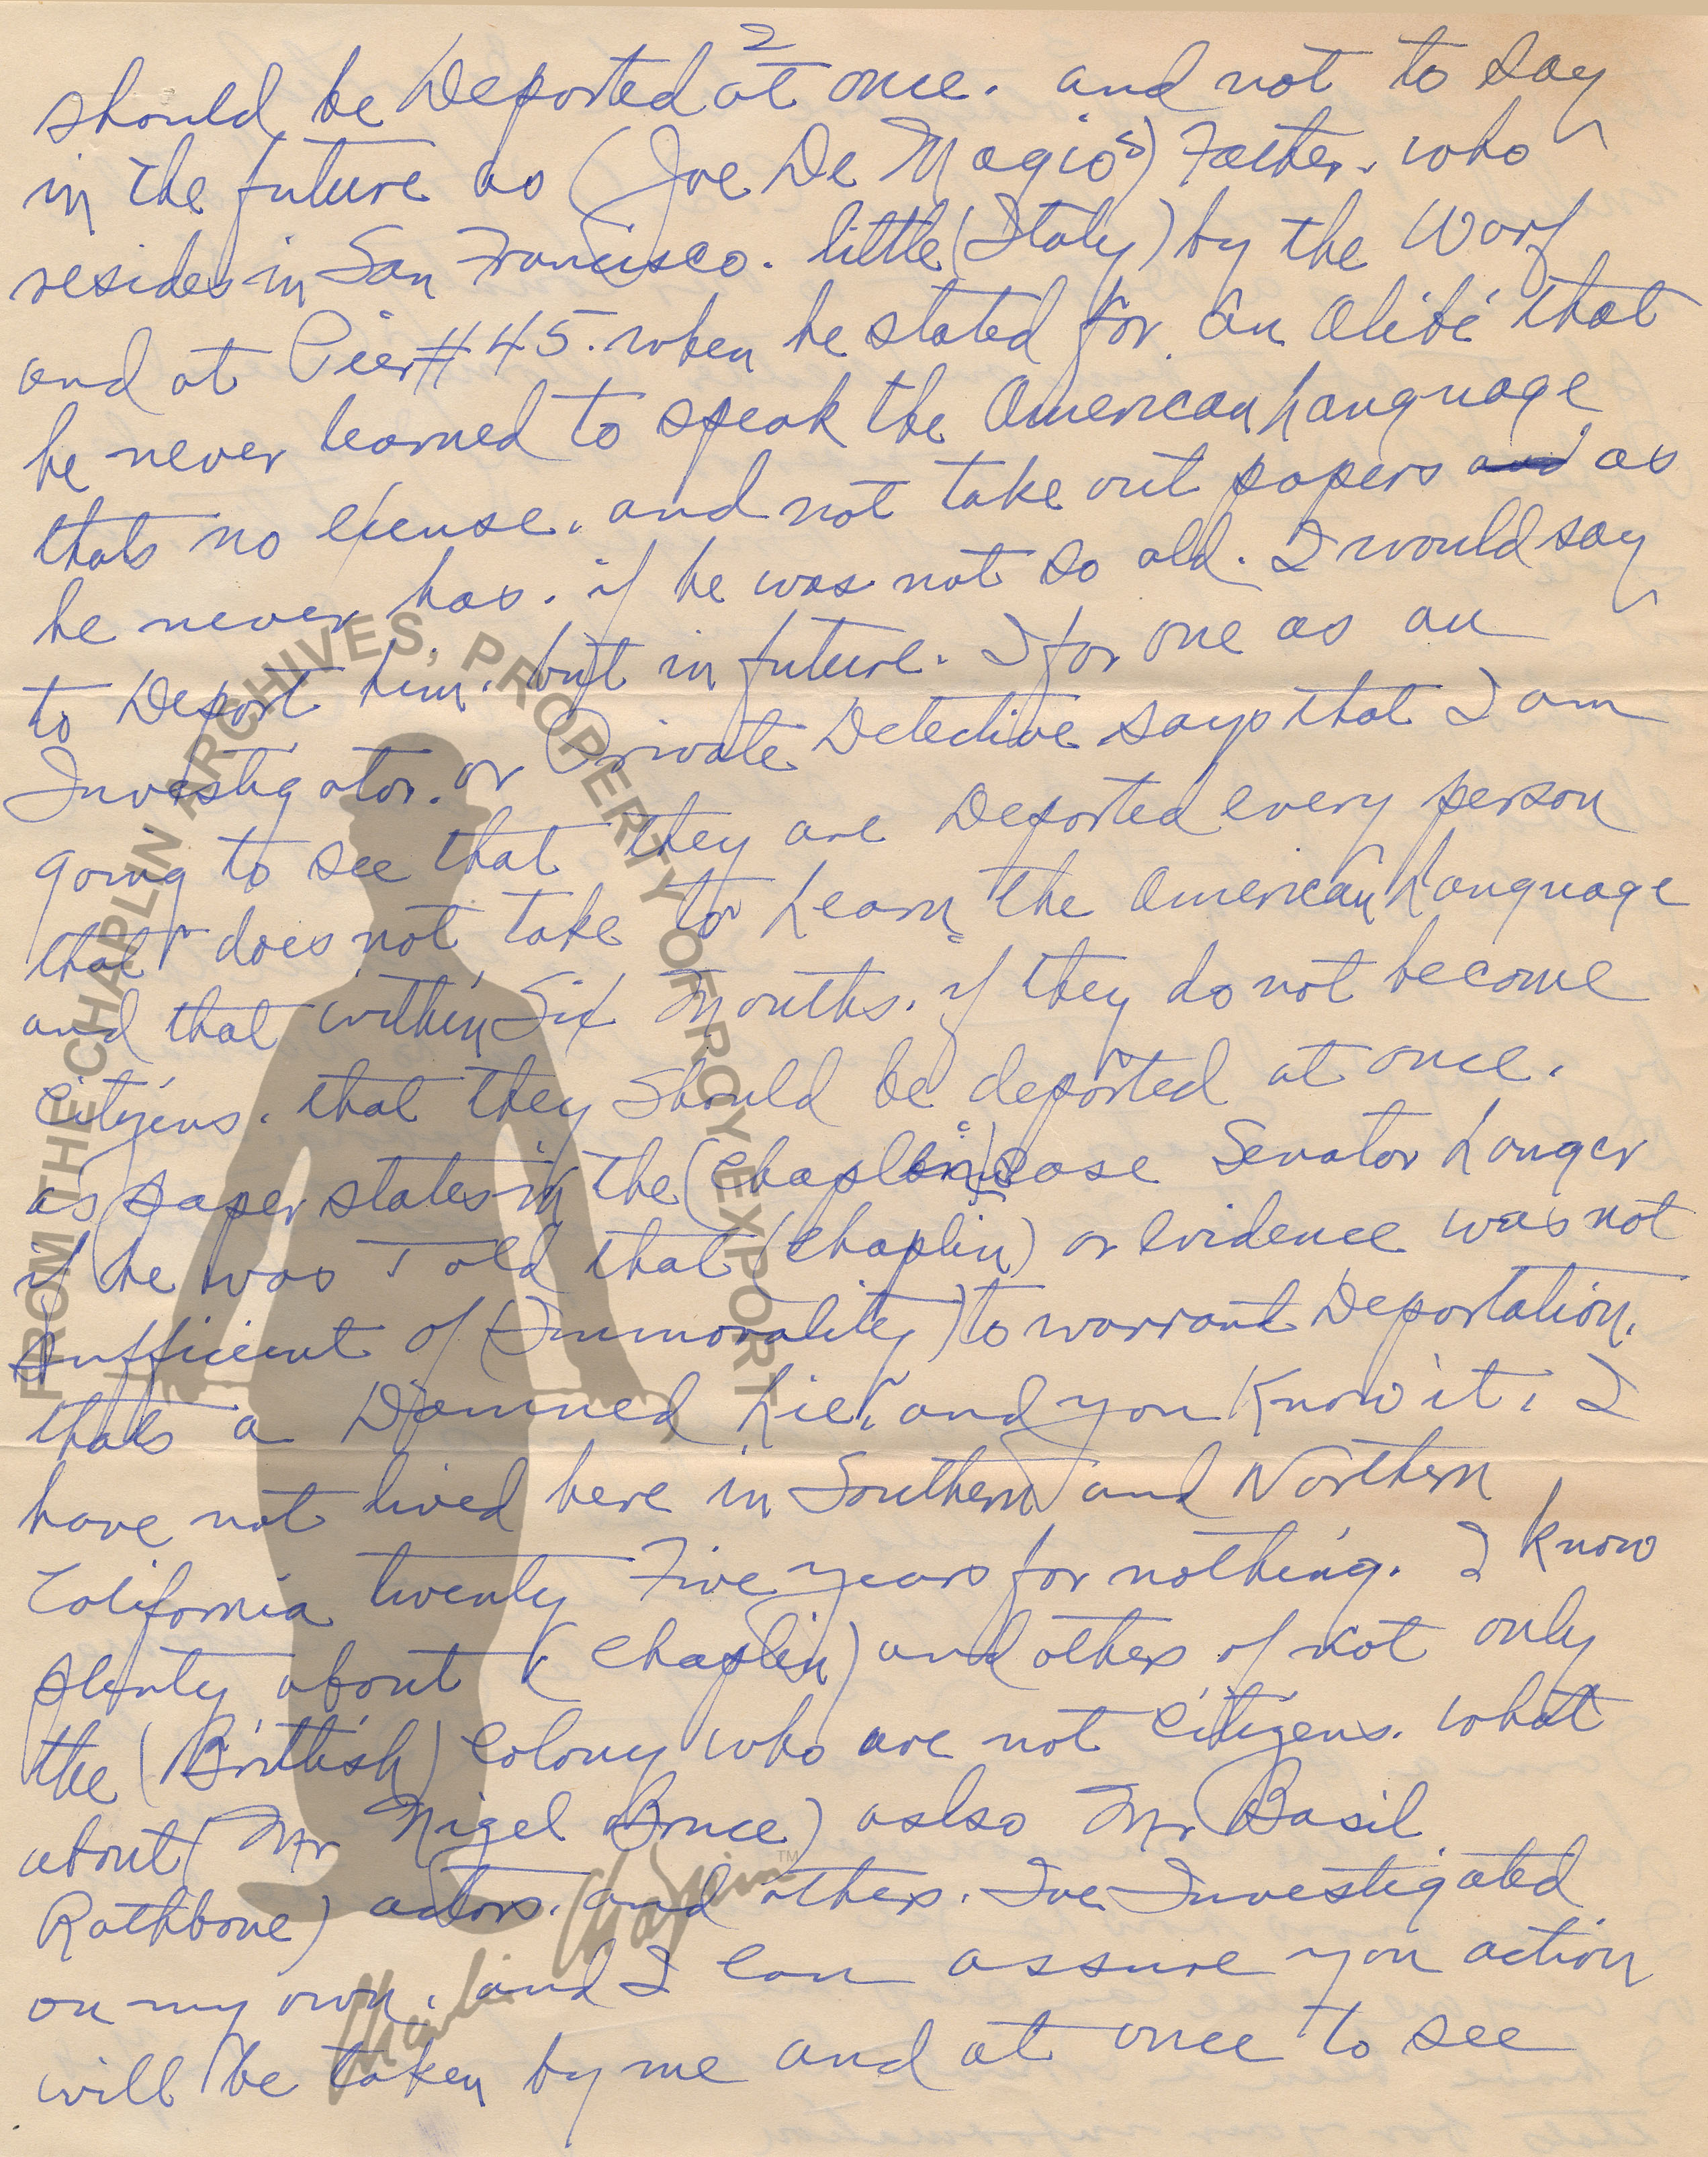 2
should be Deported at once. and not to say
in the future as (Joe De Magio's) Father. who
resides in San Francisco. little (Italy) by the Warf
and at Pier #45. when he stated for an Alibi that
he never learned to speak the American Language
thats no excuse. and not take out papers and as
he never has. if he was not so old. I would say
to Deport him. but in future. I for one as an
Investigator. or Private Detective says that I am
going to see that they are Deported every person
that does not take to Learn the American Language
and that within Six Months. if they do not become
Citizens. that they should be deported at once.
as paper states in the (Chaplin) Case Senator Langer
if he was Told that (Chaplin) or Evidence was not
sufficient of (Immorality) to warrant Deportation.
thats a Damned Lie. and you Know it. I
have not lived here in Southern and Northern
California twenty Five years for nothing. I know
plenty about (Chaplin) and others of not only
the (Brittish) Colony who are not Citizens. what
about (Mr Nigel Bruce) aslso Mr Basil
Rathbone) actors. and others. Ive Investigated
on my own. and I Can assure you action
will be taken by me and at once to see
FROM THE CHAPLIN ARCHIVES, PROPERTY OF ROY EXPORT
Charlie Chaplin™